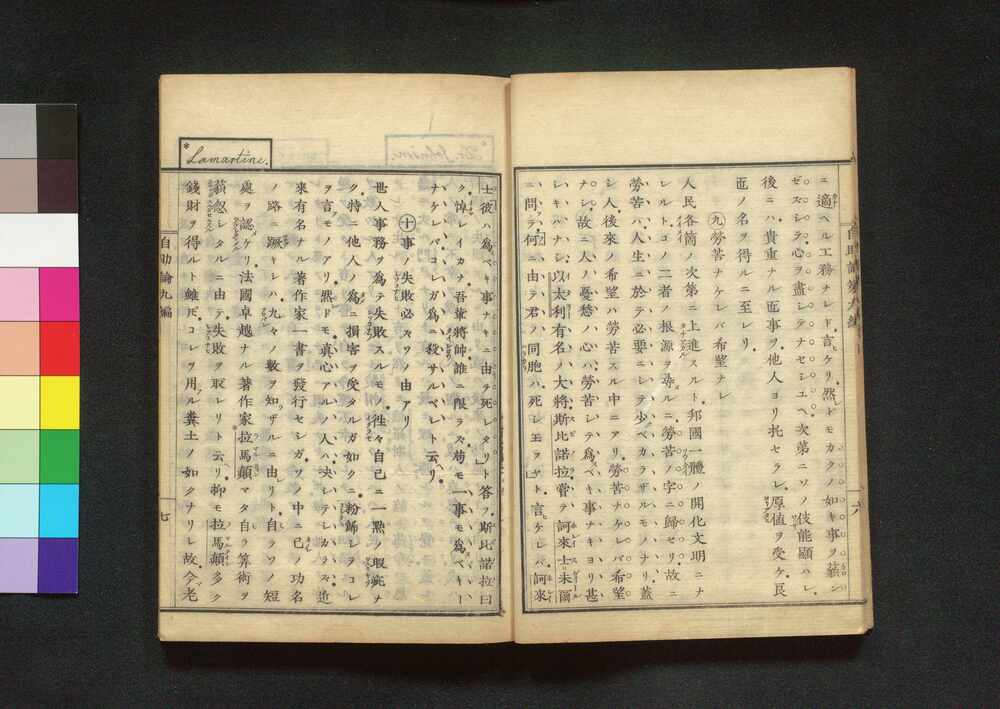 ニ適ヘル工務ナレド言ケリ然ドモカクノ如キ事ヲ蔑ン
ゼズシテ心ヲ盡シテナセシユヘ次第ニソノ伎能顯ハレ
後ニハ貴重ナル画事ヲ他人ヨリ托セラレ厚値ヲ受ケ良
画ノ名ヲ得ルニ至レリ
九勞苦ナケレバ希望ナシ
人民各箇ノ次第ニ上進スルト邦國一體ノ開化文明ニナ
レルトコノ二者ノ根源ヲ尋ルニ勞苦ノ字ニ歸セリ故ニ
勞苦ハ人生ニ於テ必要ニシテ少ベカラザルモノナリ蓋
シ人後來ノ希望ハ勞苦スル中ニアリ勞苦ナケレバ希望
ナシ故ニ人ノ憂愁ノ心ハ勞苦シテ爲ベキ事ナキヨリ甚
シキハナシ以太利有名ノ大將斯比諾拉嘗テ訶來士未爾
ニ問テ何ニ由テ君ノ同胞ハ死シ玉ヲヤト言ケレバ訶來
Lamartine.
士彼ハ爲ベキ事ナキニ由テ死シタリト答フ斯比諾拉曰
ク悼シイカナ吾輩將帥誰ニ限ラズ苟モ一事モ爲ベキ
ナケレバコレガ爲ニ殺サルベシト云リ
十事ノ失敗必ズソノ由アリ
世人事務ヲ爲テ失敗スルモノ往々自己ニ一點ノ瑕疵ナ
ク特ニ他人ノ爲ニ損害ヲ受タルガ如クニ粉飾シテコレ
ヲ言モノアリ然ドモ眞心アルノ人ハ決シテシカラズ近
來有名ナル著作家一書ヲ發行セシガソノ中ニ己ノ功名
ノ路ニ蹶キシハ九々ノ數ヲ知ザルニ由リト自ラソノ短
處ヲ認ケリ法國卓越ナル著作家拉馬顛マタ自ラ算術ヲ
藐忽シタルニ由テ失敗ヲ取レリト云リ抑モ拉馬顛多ク
錢財ヲ得ルト雖ドモコレヲ用ル糞土ノ如クナリレ故今老
自助論九編
七
六